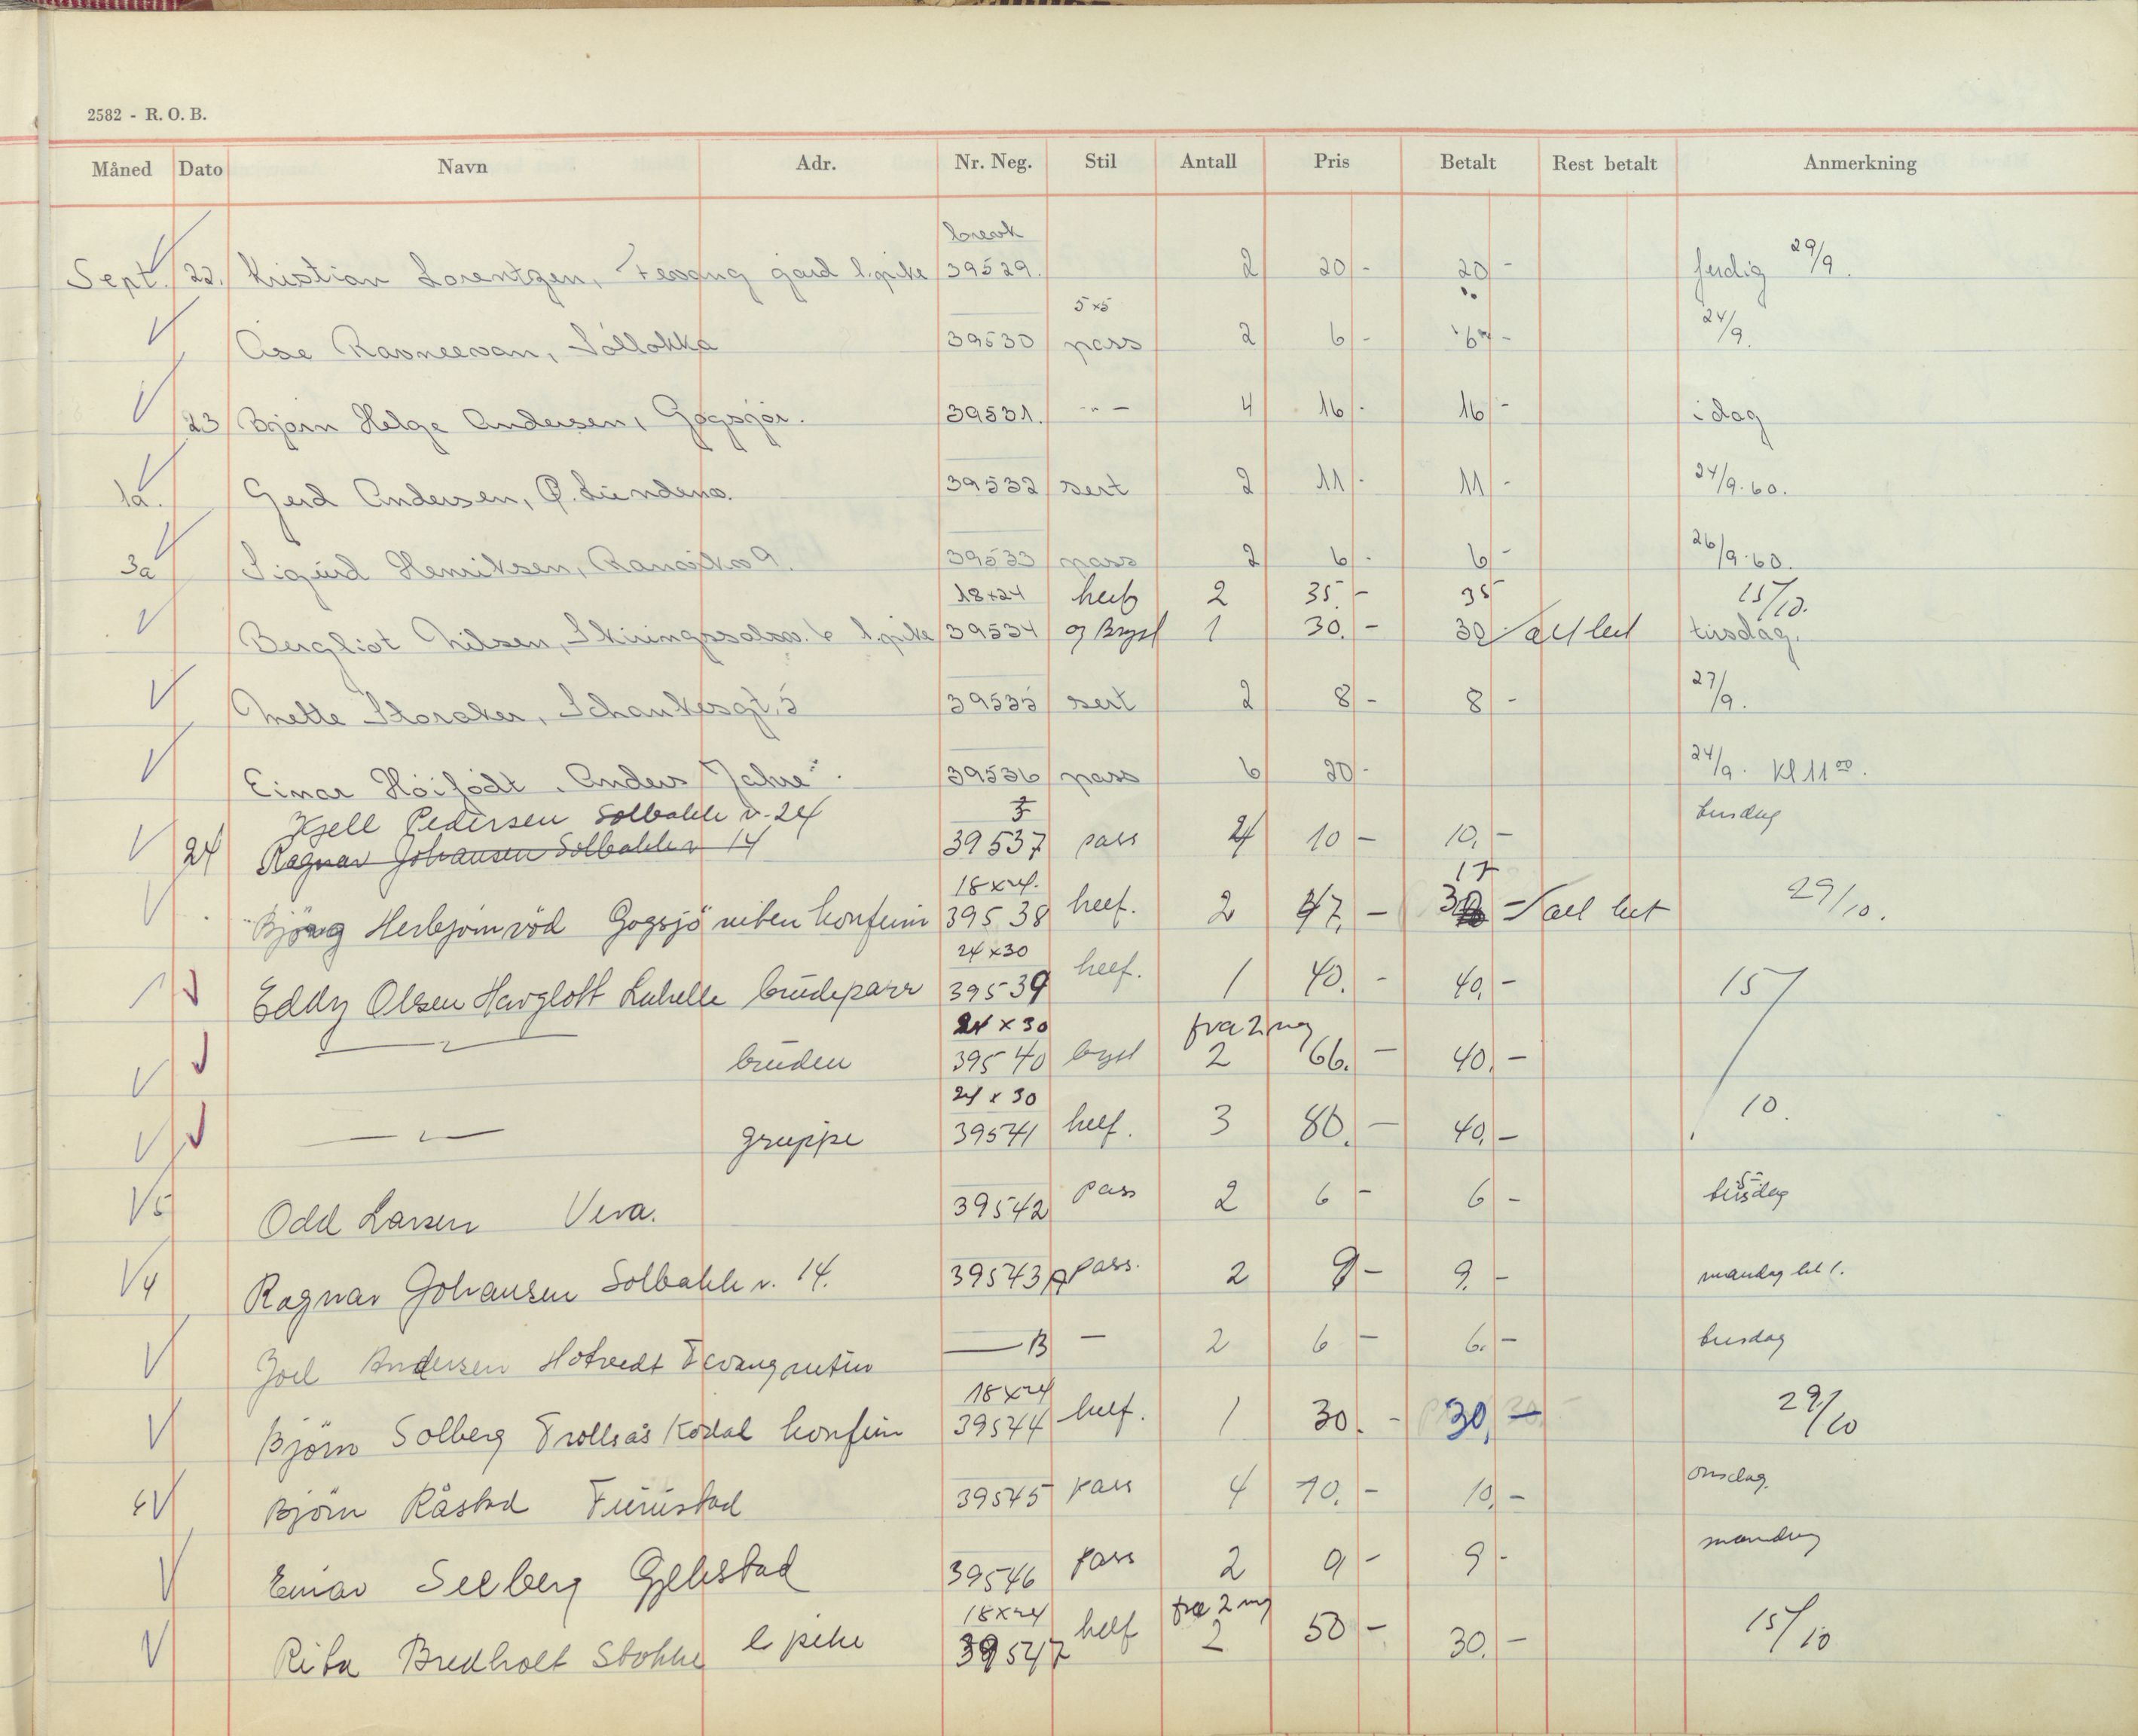 2582 - R. O. B.
Måned Dato Navn Adr. Nr. Neg. Stil Antall Pris Betalt Rest betalt Anmerkning
Sept. 22. Kristian Lorentzen, Fevang gård l. pike brevk 39529. 2 20 - 20 - ferdig 29/9.
Åse Ravneevan, Söllökka 39530 5x5 pass 2 6 - 6 - 24/9.
23 Bjørn Helge Andersen, Gogsjør. 39531. - " - 4 16 - 16 - idag
1a. Gerd Andersen, P. Lundens. 39532 sert 2 11 - 11 - 24/9.60.
3a Sigurd Henriksen, Ranvikv 9. 39533 pass 2 6 - 6 - 26/9.60.
18x24 helf 2 35. - 35 - 15/10.
Bergliot Nilsen, Skiringssalsv. 6 l. pike 39534 og Bryst 1 30. - 30 / alt bet tirsdag.
Mette Storaker, Schankesgt. 5 39535 sert 2 8 - 8 - 27/9.
Einar Höifödt. "Anders Jahre". 39536 pass 6 20 - 24/9. Kl 11 00.
Kjell Pedersen Solbakk v. 24
24 Ragnar Johansen Solbakk v 14 39537 pass 4 10 - 10, - tirsdag
Björg Herbjörnröd Gogsjö uiten konfirm 18x24. 39538 helf. 2 47, - 17 30 - / all bet 29/10.
Eddy Olsen Havglott Lahelle brudeparr 24x30 39539 helf. 1 40. - 40, - 15/
— " — bruden 24 x 30 39540 byst fra 2 neg 2 66. - 40, -
— " — gruppe 24 x 30 39541 helf. 3 80. - 40, - 10.
5 Odd Larsen Vera. 39542 pass 2 6 - 6 - tirsdag
4 Ragnar Johansen Solbakk v. 14. 39543 A pass. 2 9 - 9. - mandag kl 1.
Joel Andersen Hotvedt Fevang ruten — B — 2 6 - 6. - tirsdag
Björn Solberg Trollsås Kodal konfirm 18x24 39544 helf. 1 30. - 30, - 29/10
4 Björn Råstad Furustad 39545 pass 4 10. - 10, - onsdag.
Einar Seeberg Gjekstad 39546 pass 2 9 - 9 - mandag
Rita Bredholt Stokke l pike 18x24 39547 helf fra 2 neg 2 50 - 30. - 15/10